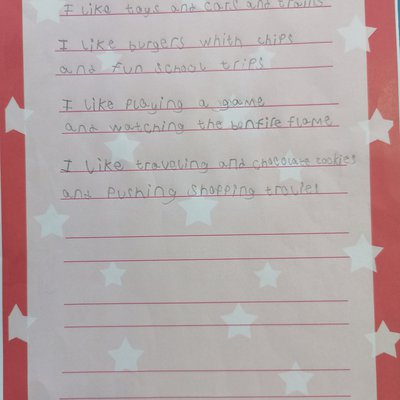 I like toys and cars and trains
I like burgers whith chips
and fun school trips
I like playing a game
and watching the bonfire flame
I like traveling and chocolate cookies
and pushing shopping trolies